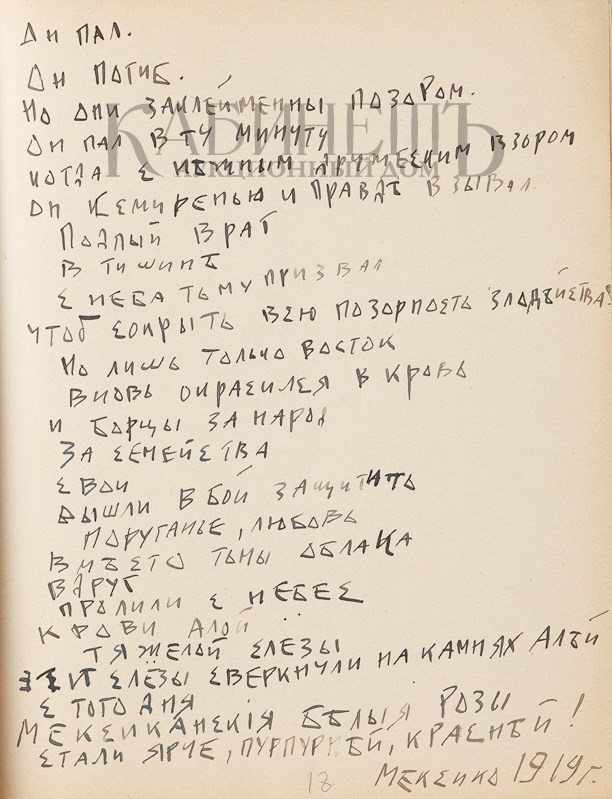 Он пал.
Он погиб.
Но они заклейменны позором.
Он пал в ту минуту
когда с нѣжным дружеским взором
он к смиренью и правдѣ взывал.
Подлый враг
в тишинѣ
с неба тьму призвал
чтоб сокрыть всю позорность злодѣйства.
Но лишь только восток
вновь окрасился в кровь
и борцы за народ
за семейства
свои
вышли в бой защитить
поруганье, любовь
вмѣсто тьмы облака
вдруг
пролили с небес
крови алой
тяжелой слезы
эти слезы сверкнули на камнях алѣй
с того дня
мексиканскія бѣлыя розы
стали ярче, пурпурнѣй, краснѣй!
Мексико 1919 г.
18
КАБИНЕТЪ
АУКЦИОННЫЙ ДОМ